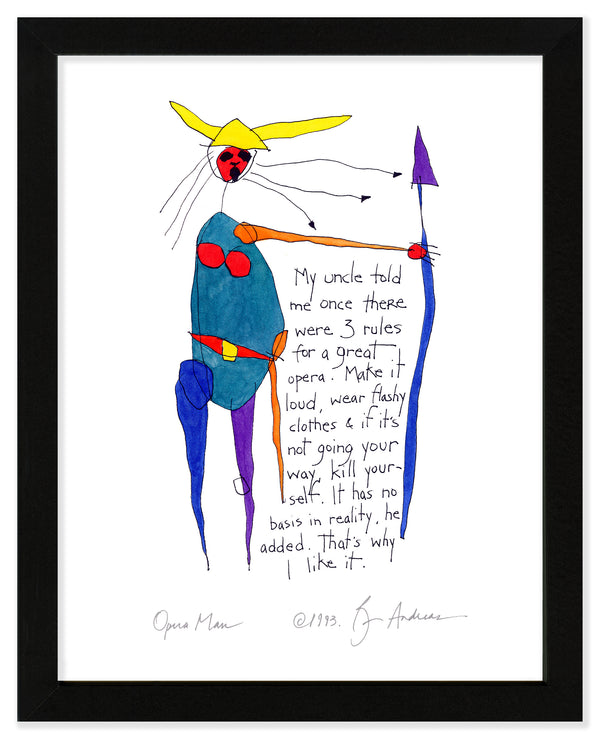 My uncle told
me once there
were 3 rules
for a great
opera. Make it
loud, wear flashy
clothes & if it's
not going your
way, kill your-
self. It has no
basis in reality, he
added. That's why
I like it.
Opera Man ©1993. Andreas